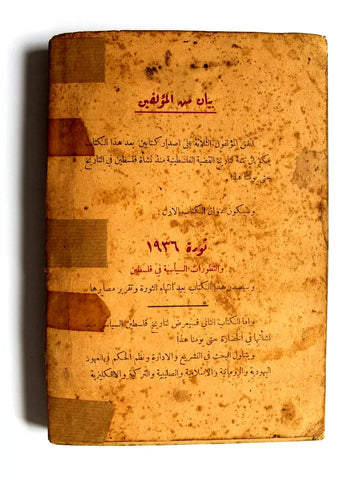 بيان من المؤلفين
اتفق المؤلفون الثلاثة على إصدار كتابين بعد هذا الكتاب
تتمة لتاريخ القضية الفلسطينية منذ نشأة فلسطين في التاريخ
حتى يومنا هذا
وسيكون عنوان الكتاب الاول :
ثورة ١٩٣٦
والتطورات السياسية في فلسطين
وسيصدر هذا الكتاب بعد انتهاء الثورة وتقرير مصايرها
واما الكتاب الثاني فسيعرض لتاريخ فلسطين السياسي منذ
نشأتها في الحضارة حتى يومنا هذا
ويتناول البحث في التشريع والادارة ونظم الحكم في العهود
اليهودية والرومانية والاسلامية والصليبية والتركية والانكليزية